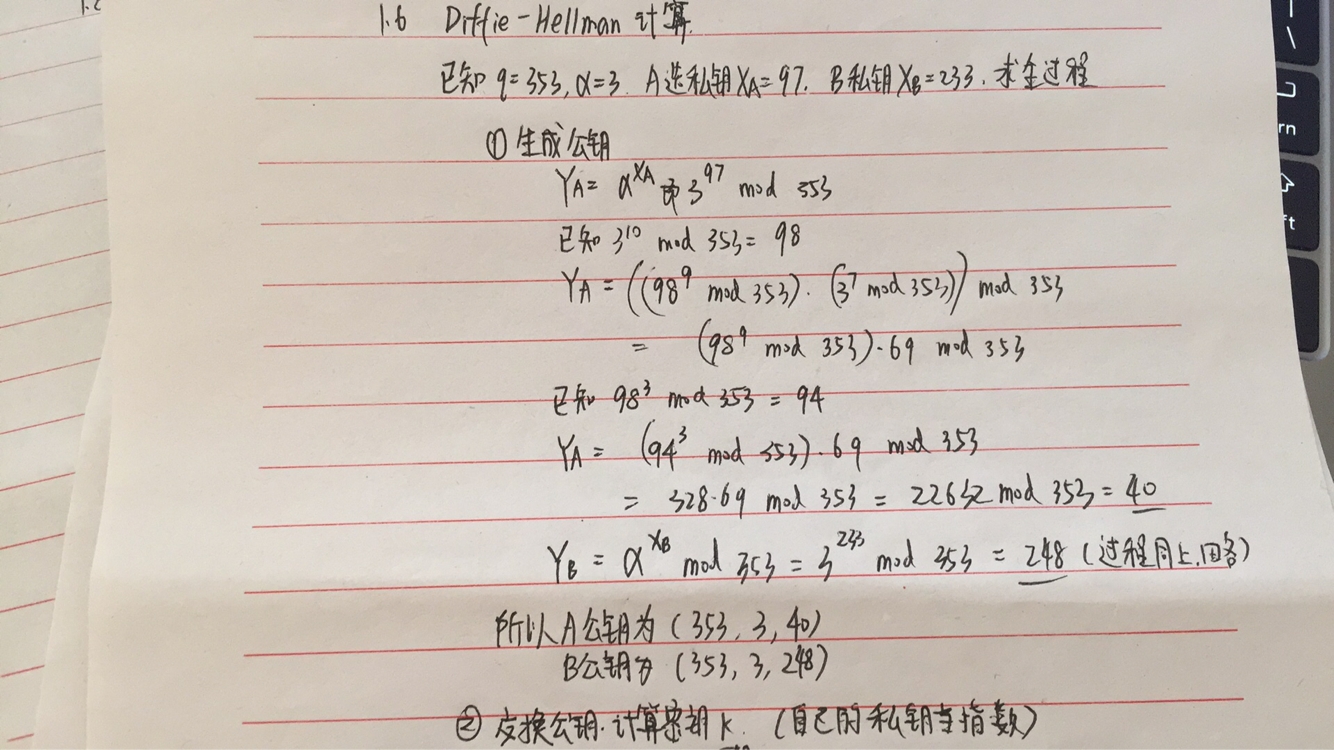 1.6 Diffie-Hellman 计算.
已知 q=353, α=3. A选私钥XA=97. B私钥XB=233. 求全过程
① 生成公钥
YA= α^XA 即 3^97 mod 353
已知 3^10 mod 353= 98
YA = ((98^9 mod 353)·(3^7 mod 353)) mod 353
= (98^9 mod 353)·69 mod 353
已知 98^3 mod 353 = 94
YA = (94^3 mod 353)·69 mod 353
= 328·69 mod 353 = 22632 mod 353 = 40
YB = α^XB mod 353 = 3^233 mod 353 = 248 (过程同上.略)
所以A公钥为 (353, 3, 40)
B公钥为 (353, 3, 248)
② 交换公钥.计算密钥K. (自己的私钥当指数)
\
rn
ft